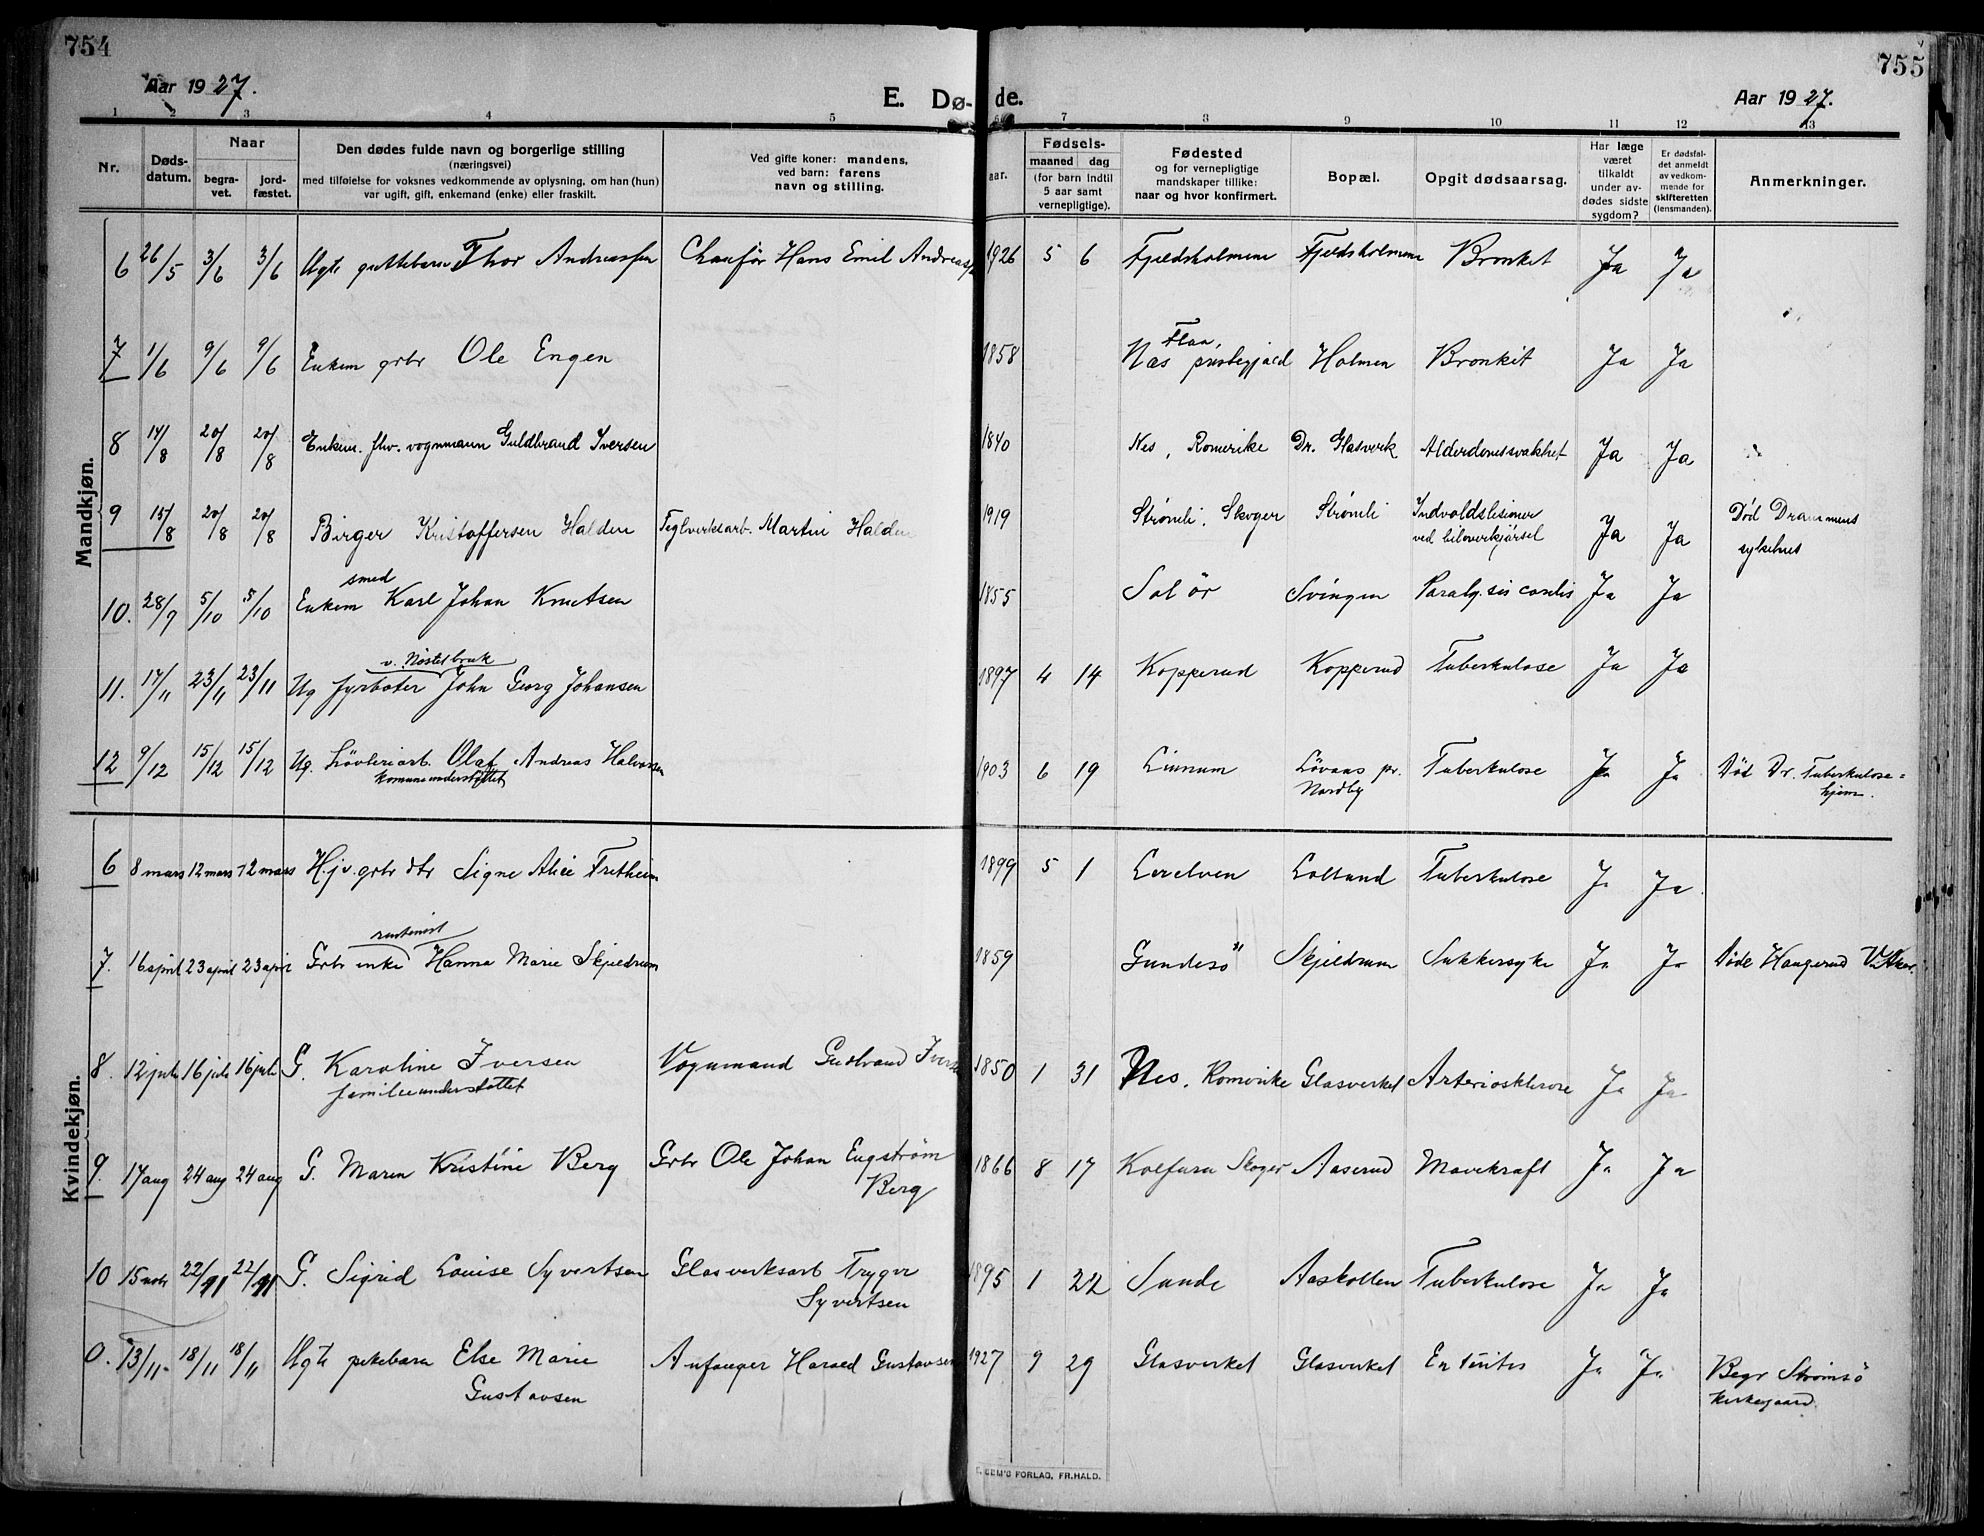 754
755
Aar 1927.
E. Dø- de.
Aar 1927.
1 2 3 4 5 6 7 8 9 10 11 12 13
Nr.
Døds-
datum.
Naar
begra-
vet.
jord-
fæstet.
Den dødes fulde navn og borgerlige stilling
(næringsvei)
med tilføielse for voksnes vedkommende av oplysning, om han (hun)
var ugift, gift, enkemand (enke) eller fraskilt.
Ved gifte koner: mandens,
ved barn: farens
navn og stilling.
aar.
Fødsels-
maaned dag
(for barn indtil
5 aar samt
vernepligtige).
Fødested
og for vernepligtige
mandskaper tillike:
naar og hvor konfirmert.
Bopæl.
Opgit dødsaarsag.
Har læge
været
tilkaldt
under av-
dødes sidste
sygdom?
Er dødsfal-
det anmeldt
av vedkom-
mende for
skifteretten
(lensmanden).
Anmerkninger.
Mandkjøn.
6 26/5 3/6 3/6 Ugte guttebarn Thor Andreassen Chaufør Hans Emil Andreass 1926 5 6 Fjeldsholmene Fjeldsholmene Bronkit Ja Ja
Flaa,
7 1/6 9/6 9/6 Enkem grbr Ole Engen 1858 Nas prestegjæld Holmen Bronkit Ja Ja
8 14/8 20/8 20/8 Enkem. fhv. vognmann Guldbrand Iversen 1840 Nes, Romerike Dr. Glasverk Alderdomssvakhet Ja Ja
9 15/8 20/8 20/8 Birger Kristoffersen Halden Teglverksarb. Martin Halden 1919 Strømli, Skoger Strømli Indvoldslisioner Ja Ja Død Drammens
ved biloverkjørsel sykehus
smed
10. 28/9 5/10 5/10 Enkem Karl Johan Knutsen 1855 Solør Svingen Paralysis cordis Ja Ja
v. Nøstedbruk
11. 17/11 23/11 23/11 Ug fyrbøter John Georg Johansen 1897 4 14 Kopperud Kopperud Tuberkulose Ja Ja
12 9/12 15/12 15/12 Ug. Løvteriarb. Olaf Andreas Halvorsen 1903 6 19 Linnum Løvaas pr. Tuberkulose Ja Ja Død Dr. Tuberkulose=
komuneunderstøttet Nordby hjem.
Kvindekjøn.
6 8 mars 12 mars 12 mars Hjv. grbr dtr Signe Alice Fretheim 1899 5 1 Lerelven Lolland Tuberkulose Ja Ja
7. 16 april 23 april 23 april Grbr enke Hanna Marie Skjeldrum 1859 Gundesö Skjeldrum Sukkersyke Ja Ja Døde Haugerud V. Aker
8. 12 juli 16 juli 16 juli G. Karoline Iversen Vognmand Gudbrand Ivers 1850 1 31 Nes, Romerike Glasverket Arteriosklerose Ja Ja
familieunderstøttet
9. 17 aug 24 aug 24 aug G. Maren Kristine Berg Grbr Ole Johan Engstrøm 1866 8 17 Kolfura Skoger Aaserud Mavekræft Ja Ja
Berg
10 15 nobr 22/11 22/11 G. Sigrid Louise Syvertsen Glasverksarb Trygve 1895 1 22 Sande Aaskollen Tuberkulose Ja Ja
Syvertsen
0. 13/11 18/11 18/11 Ugte pikebarn Else Marie Anfanger Harald Gustavsen 1927 9 29 Glasverket Glasverket Enteritis Ja Ja Begr Strømsø
Gustavsen kirkegaard.
GEM'S FORLAG, FR.HALD.